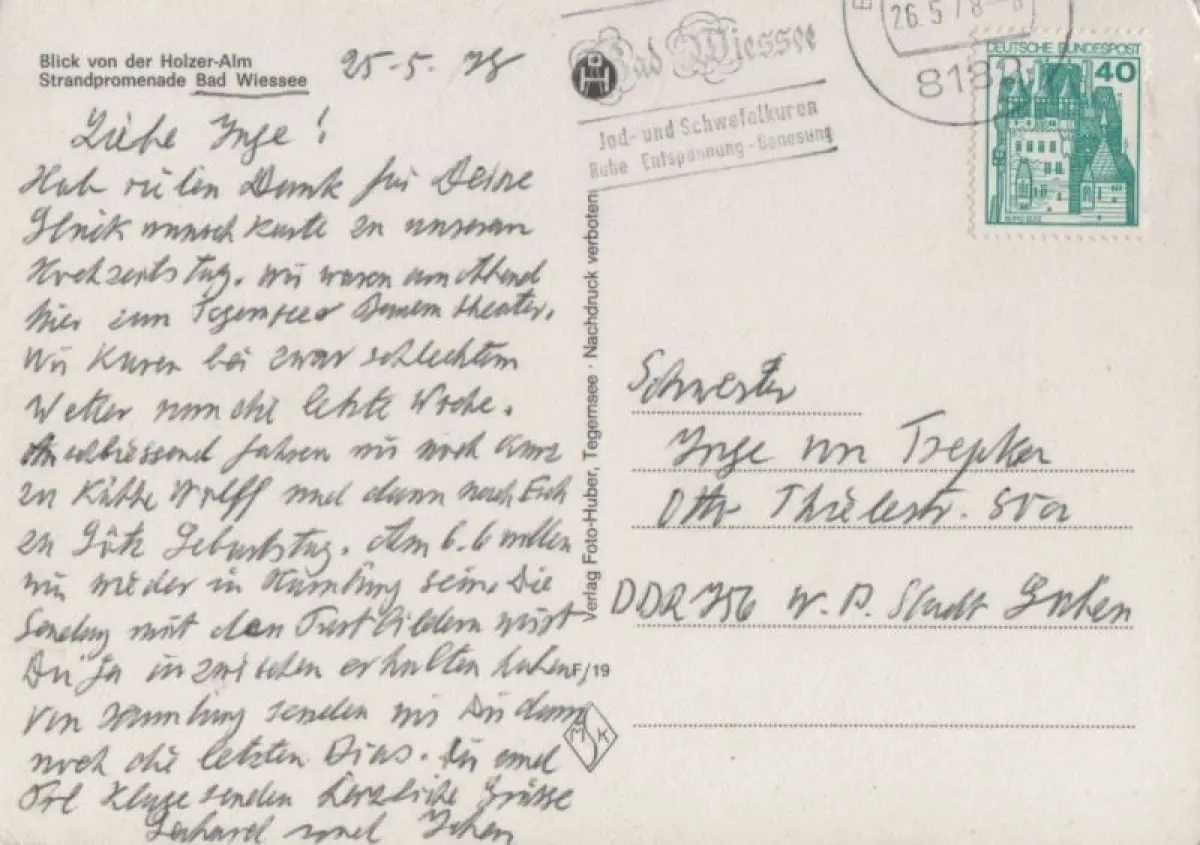 Blick von der Holzer-Alm
Strandpromenade Bad Wiessee
25-5. 78
Liebe Inge!
Hab vielen Dank für Deine
Glückwunschkarte zu unserem
Hochzeitstag. Wir waren am Abend
hier zum Tegernseer Bauerntheater.
Wir kuren bei zwar schlechtem
Wetter nun die letzte Woche.
Anschliessend fahren wir noch kurz
zu Käthe Wolff und dann nach
zu Götz Geburtstag. Am 6.6 wollen
wir wieder in Hamburg sein. Die
Sendung mit den wirst
Du ja inzwischen erhalten haben
Von Hamburg senden wir Dir dann
noch die letzten Dias. Dir und
Frl Kluge senden herzliche Grüsse
Gerhard und
Verlag Foto-Huber, Tegernsee · Nachdruck verboten
F/19
M K
Bad Wiessee
Jod- und Schwefelkuren
Ruhe Entspannung-Genesung
26.5.78-8
8182
DEUTSCHE BUNDESPOST
40
BURG ELTZ
Schwester
Inge von Trepka
Otto Thielestr.
DDR 756 W. P. Stadt Guben